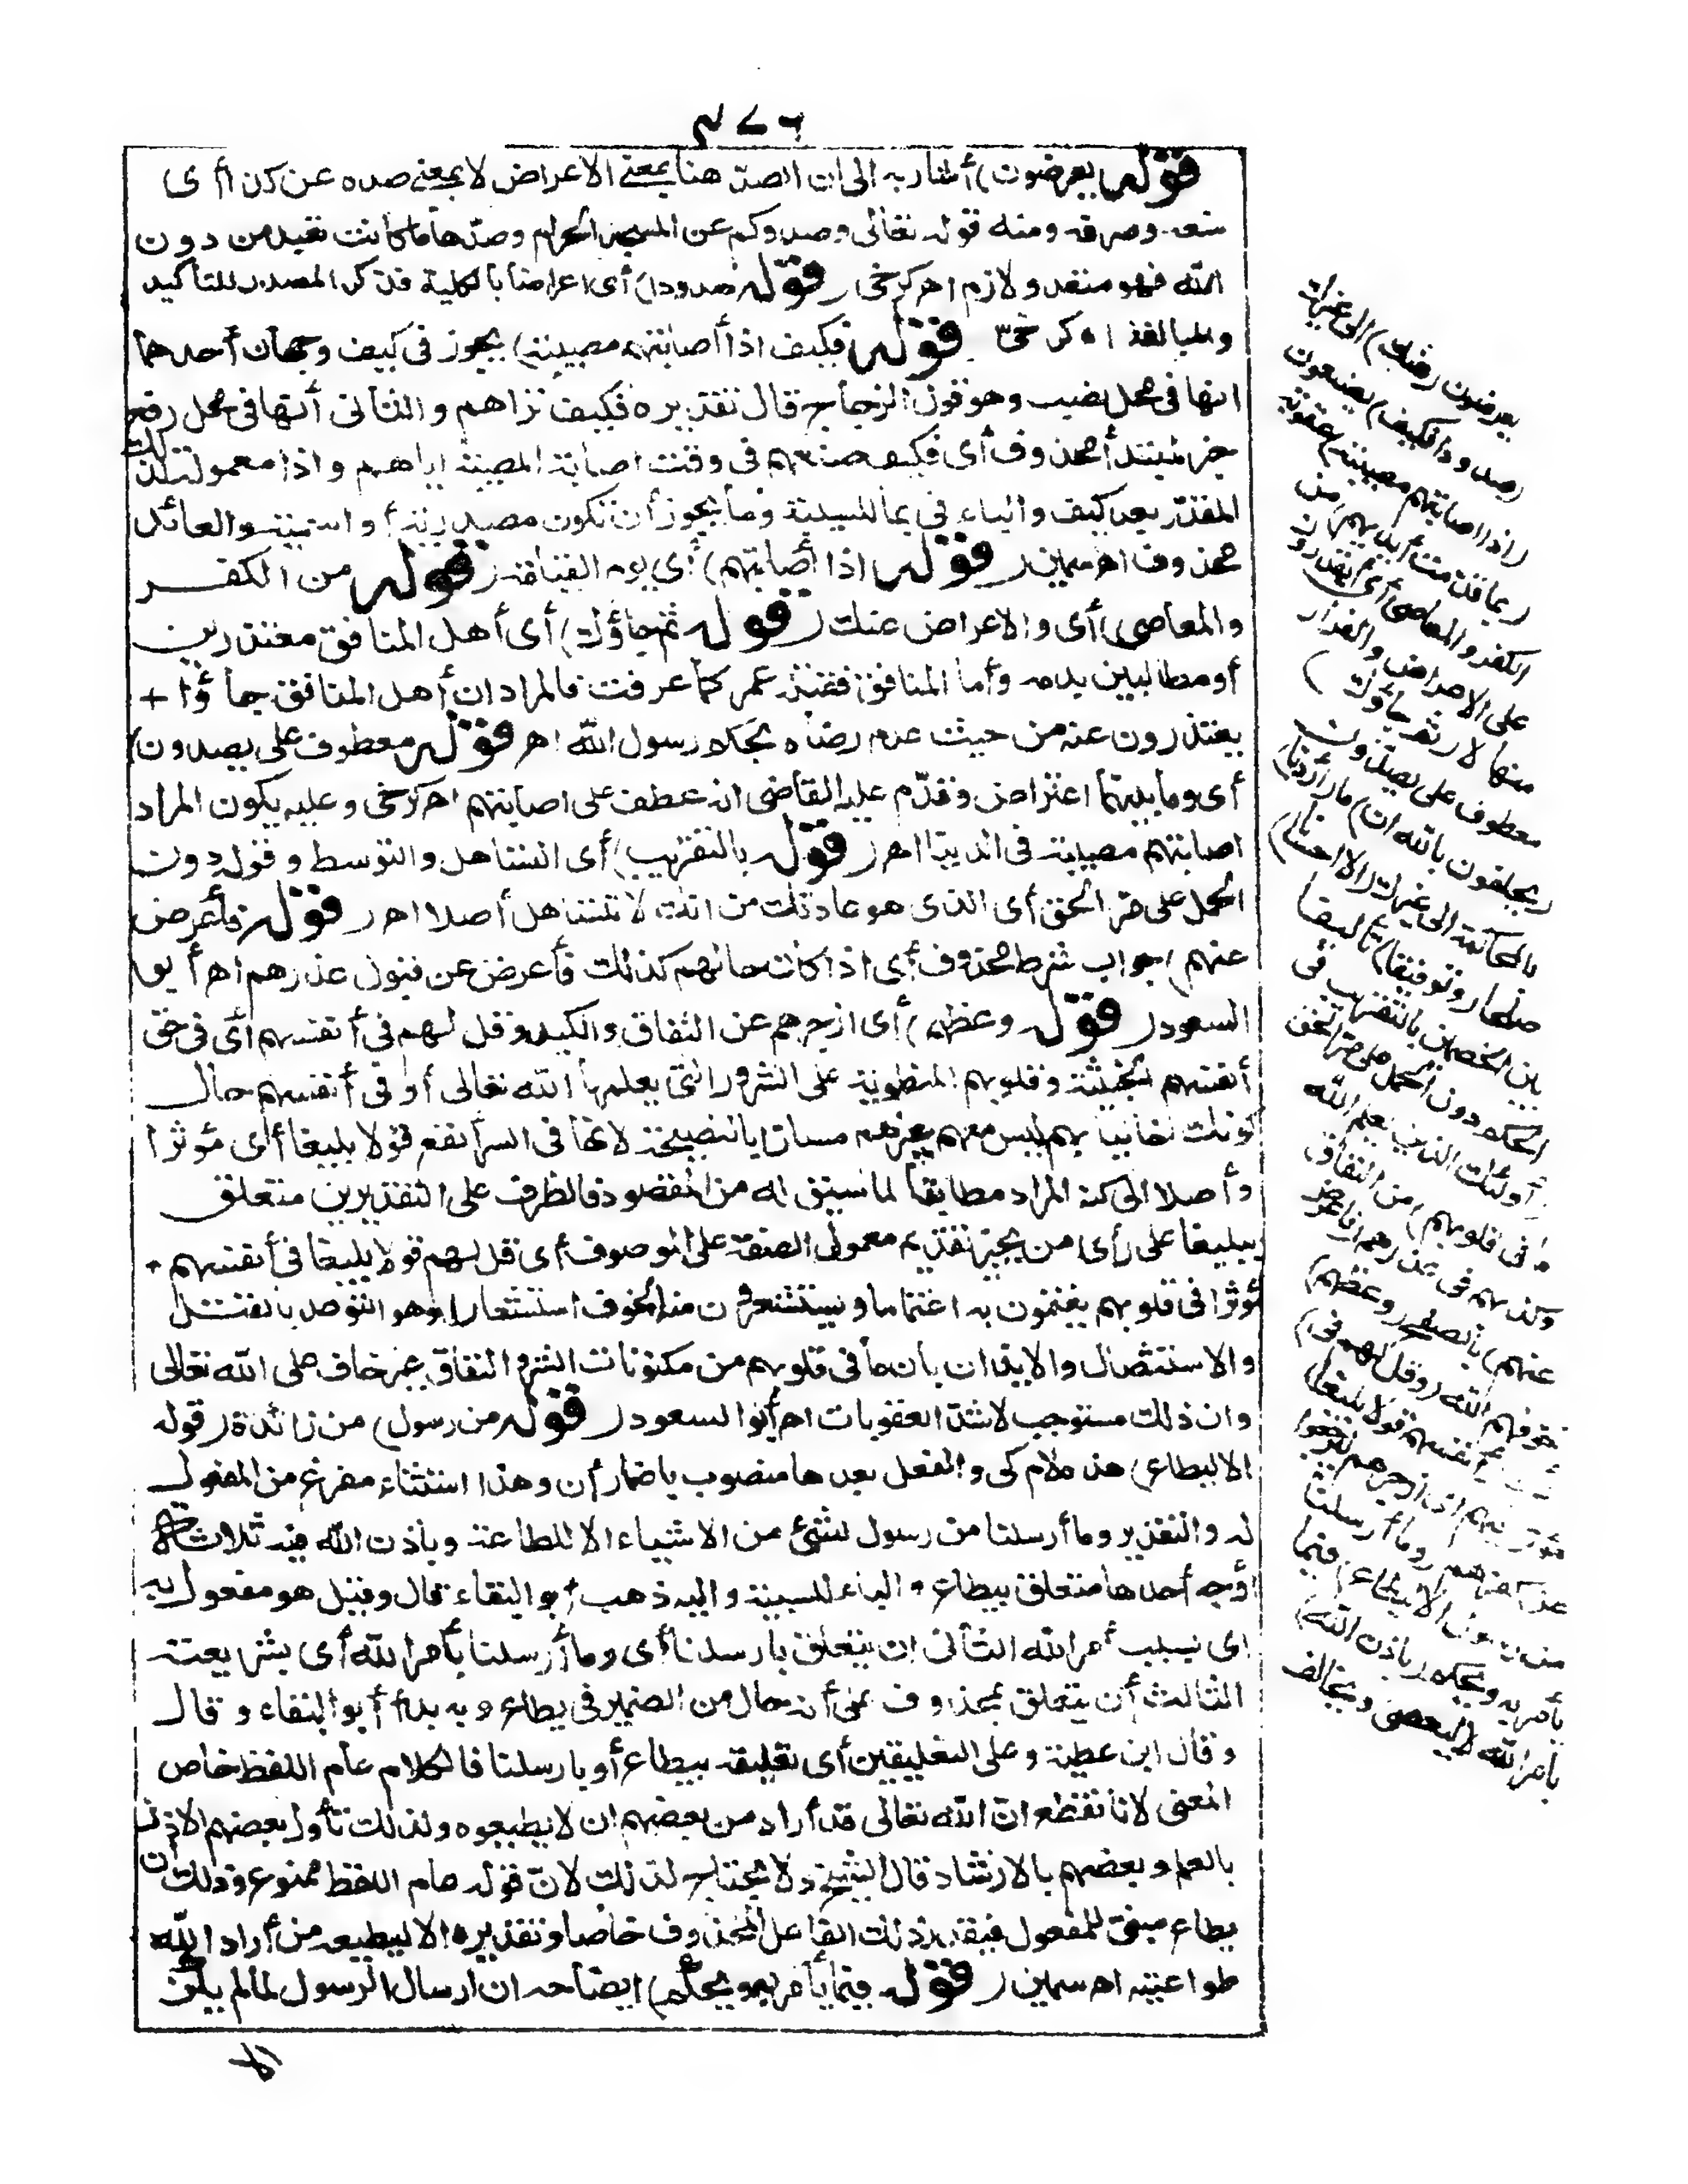 ٣٧٦
قوله يعرضون) أشار به الى ان الصدّ هنا بمعنى الاعراض لا بمعنى صده عن كذا أى
منعه وصرفه ومنه قوله تعالى وصدوكم عن المسجد الحرام وصدّها ما كانت تعبد من دون
الله فهو متعد ولازم اهـ كرخى (قوله صدودا) أى اعراضا بالكلية فذكر المصدر للتأكيد
والمبالغة اه كرخى (قوله فكيف اذا أصابتهم مصيبة) يجوز فى كيف وجهان أحدهما
انها فى محل نصب وهو قول الزجاج قال تقديره فكيف تراهم والثانى أنها فى محل رفع
خبر مبتدأ محذوف أى فكيف صنعهم فى وقت اصابة المصيبة اياهم واذا معمولة لذلك
المقدّر بعد كيف والباء فى بما للسببية وما يجوز أن تكون مصدرية أو اسمية والعائد
محذوف اهـ سمين (قوله اذا أصابتهم) أى يوم القيامة (قوله من الكفر
والمعاصى) أى والاعراض عنك (قوله ثم جاؤك) أى أهل المنافق معتذرين
أو مطالبين بدمه وأما المنافق فقتله عمر كما عرفت فالمراد ان أهل المنافق جاؤا +
يعتذرون عنه من حيث عدم رضاه بحكم رسول الله اهـ (قوله معطوف على يصدون)
أى وما بينهما اعتراض وقدّم عليه القاضى انه عطف على اصابتهم اهـ كرخى وعليه يكون المراد
اصابتهم مصيبة فى الدنيا اهـ (قوله بالتقريب) أى التساهل والتوسط وقوله دون
الحمل على مرّ الحق أى الذى هو عادتك من انك لا تتساهل أصلا اهـ (قوله فأعرض
عنهم) جواب شرط محذوف أى اذا كانت حالهم كذلك فأعرض عن قبول عذرهم اهـ أبو
السعود (قوله وعظهم) أى ازجرهم عن النفاق والكيد وقل لهم فى أنفسهم أى فى حق
أنفسهم الخبيثة وقلوبهم المنطوية على الشرور التى يعلمها الله تعالى أو فى أنفسهم حال
كونك خاليا بهم ليس معهم غيرهم مسارّا بالنصيحة لانها فى السرّ أنفع قولا بليغا أى مؤثرا
وأصلا الى كنه المراد مطابقا لما سيق له من المقصود فالظرف على التقديرين متعلق
ببليغا على رأى من يجيز تقديم معمول الصفة على الموصوف أى قل لهم قولا بليغا فى أنفسهم +
مؤثرا فى قلوبهم يغتمون به اغتماما ويستشعرون منه الخوف استشعارا وهو التوعد بالقتل
والاستئصال والايذان بان ما فى قلوبهم من مكنونات الشر والنفاق غير خاف على الله تعالى
وان ذلك مستوجب لاشدّ العقوبات اهـ أبو السعود (قوله من رسول) من زائدة (قوله
الا ليطاع) هذه لام كى والفعل بعدها منصوب باضمار أن وهذا استثناء مفرغ من المفعول
له والتقدير وما أرسلنا من رسول لشئ من الاشياء الا للطاعة وباذن الله فيه ثلاثة
أوجه أحدها متعلق بيطاع والباء للسببية واليه ذهب أبو البقاء قال وقيل هو مفعول به
اى بسبب أمر الله الثانى ان يتعلق بارسلنا أى وما أرسلنا بأمر الله أى بشريعته
الثالث أن يتعلق بمحذوف على أنه حال من الضمير فى يطاع وبه بدأ أبو البقاء وقال
وقال ابن عطية وعلى التعليقين أى تعليقه بيطاع أو بارسلنا فالكلام عام اللفظ خاص
المعنى لانا نقطع انّ الله تعالى قد أراد من بعضهم ان لا يطيعوه ولذلك تأول بعضهم الاذن
بالعلم وبعضهم بالارشاد قال الشيخ ولا يحتاج لذلك لانّ قوله عام اللفظ ممنوع وذلك ان
يطاع مبنىّ للمفعول فيقدر ذلك الفاعل المحذوف خاصا وتقديره الا ليطيعه من أراد الله
طواعيته اهـ سمين (قوله فيما يأمر به ويحكم) ايضاحه ان ارسال الرسول لما لم يكن
الا
يعرضون (عنك) الى غيرك
(صدودا فكيف) يصنعون
(اذا اصابتهم مصيبة) عقوبة
(بما قدمت أيديهم) من
الكفر والمعاصى أى أيقدرون
على الاعراض والفرار
منها لا (ثم جاؤك)
معطوف على يصدون
(يحلفون بالله ان) ما (أردنا)
بالمحاكمة الى غيرك (الا احسانا)
صلحا (وتوفيقا) تأليفا
بين الخصمين بالتقريب فى
الحكم دون الحمل على مرّ الحق
(أولئك الذين يعلم الله
ما فى قلوبهم) من النفاق
وكذبهم فى عذرهم (فأعرض
عنهم) بالصفح (وعظهم)
خوفهم الله (وقل لهم فى)
أنفسهم قولا بليغا)
مؤثرا فيهم اى ازجرهم ليرجعوا
عن كفرهم (وما أرسلنا
من رسول الا ليطاع) فيما
يأمر به ويحكم (باذن الله)
بأمر الله (ليعصى ويخالف